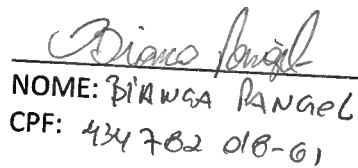 Bianca Rangel
NOME: BIANCA RANGEL
CPF: 434 782 018-61